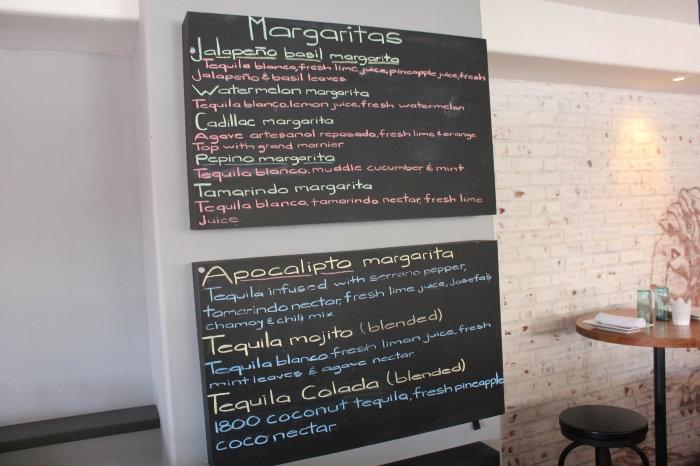 Margaritas
Jalapeño basil margarita
Tequila blanco, fresh lime juice, pineapple juice, fresh
Jalapeño & basil leaves
Watermelon margarita
Tequila blanco, lemon juice, fresh watermelon
Cadillac margarita
Agave artesanal reposado, fresh lime & orange
Top with grand marnier
Pepino margarita
Tequila blanco, muddle cucumber & mint
Tamarindo margarita
Tequila blanco, tamarindo nectar, fresh lime
Juice
Apocalipto margarita
Tequila infused with serrano pepper,
tamarindo nectar, fresh lime juice, Josefa's
chamoy & chili mix
Tequila mojito (blended)
Tequila blanco fresh limon juice, fresh
mint leaves & agave nectar
Tequila Colada (blended)
1800 coconut tequila, fresh pineapple
coco nectar